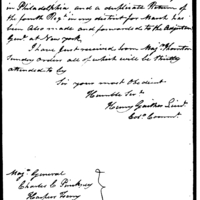 in Philadelphia and a duplicate Return of
the fourth Regt in my district for March has
been also made and forwarded to the Adjutant
Genl at New york.
I have just received from Majr
Sundry orders all of which will be strictly
attended to by
Sir your most Obedient
Humble Sert
Henry Gaither Lieut
Colo Commt
Majr General
Charles C Pinkney
Harpers Ferry